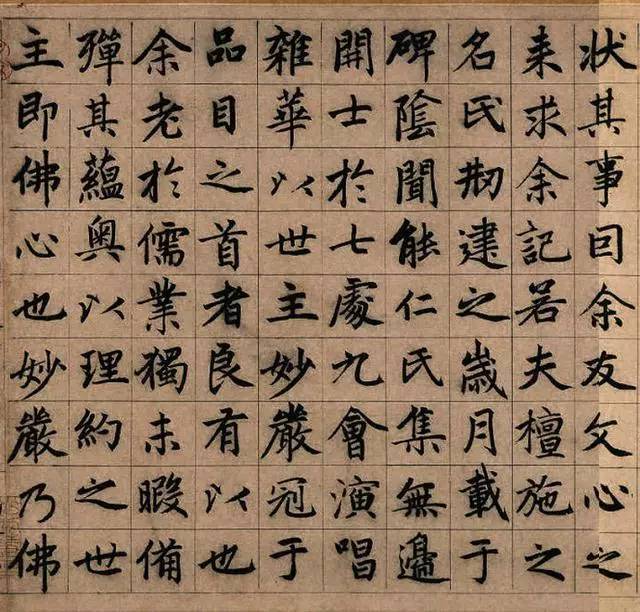 状其事囙余友文心之
来求余記若夫檀施之
名氏刱建之歳月載于
碑隂聞能仁氏集無邉
開士於七處九會演唱
雜華以世主妙嚴冠于
品目之首者良有以也
余老於儒業獨未暇備
殫其藴奥以理約之世
主即佛心也妙嚴乃佛